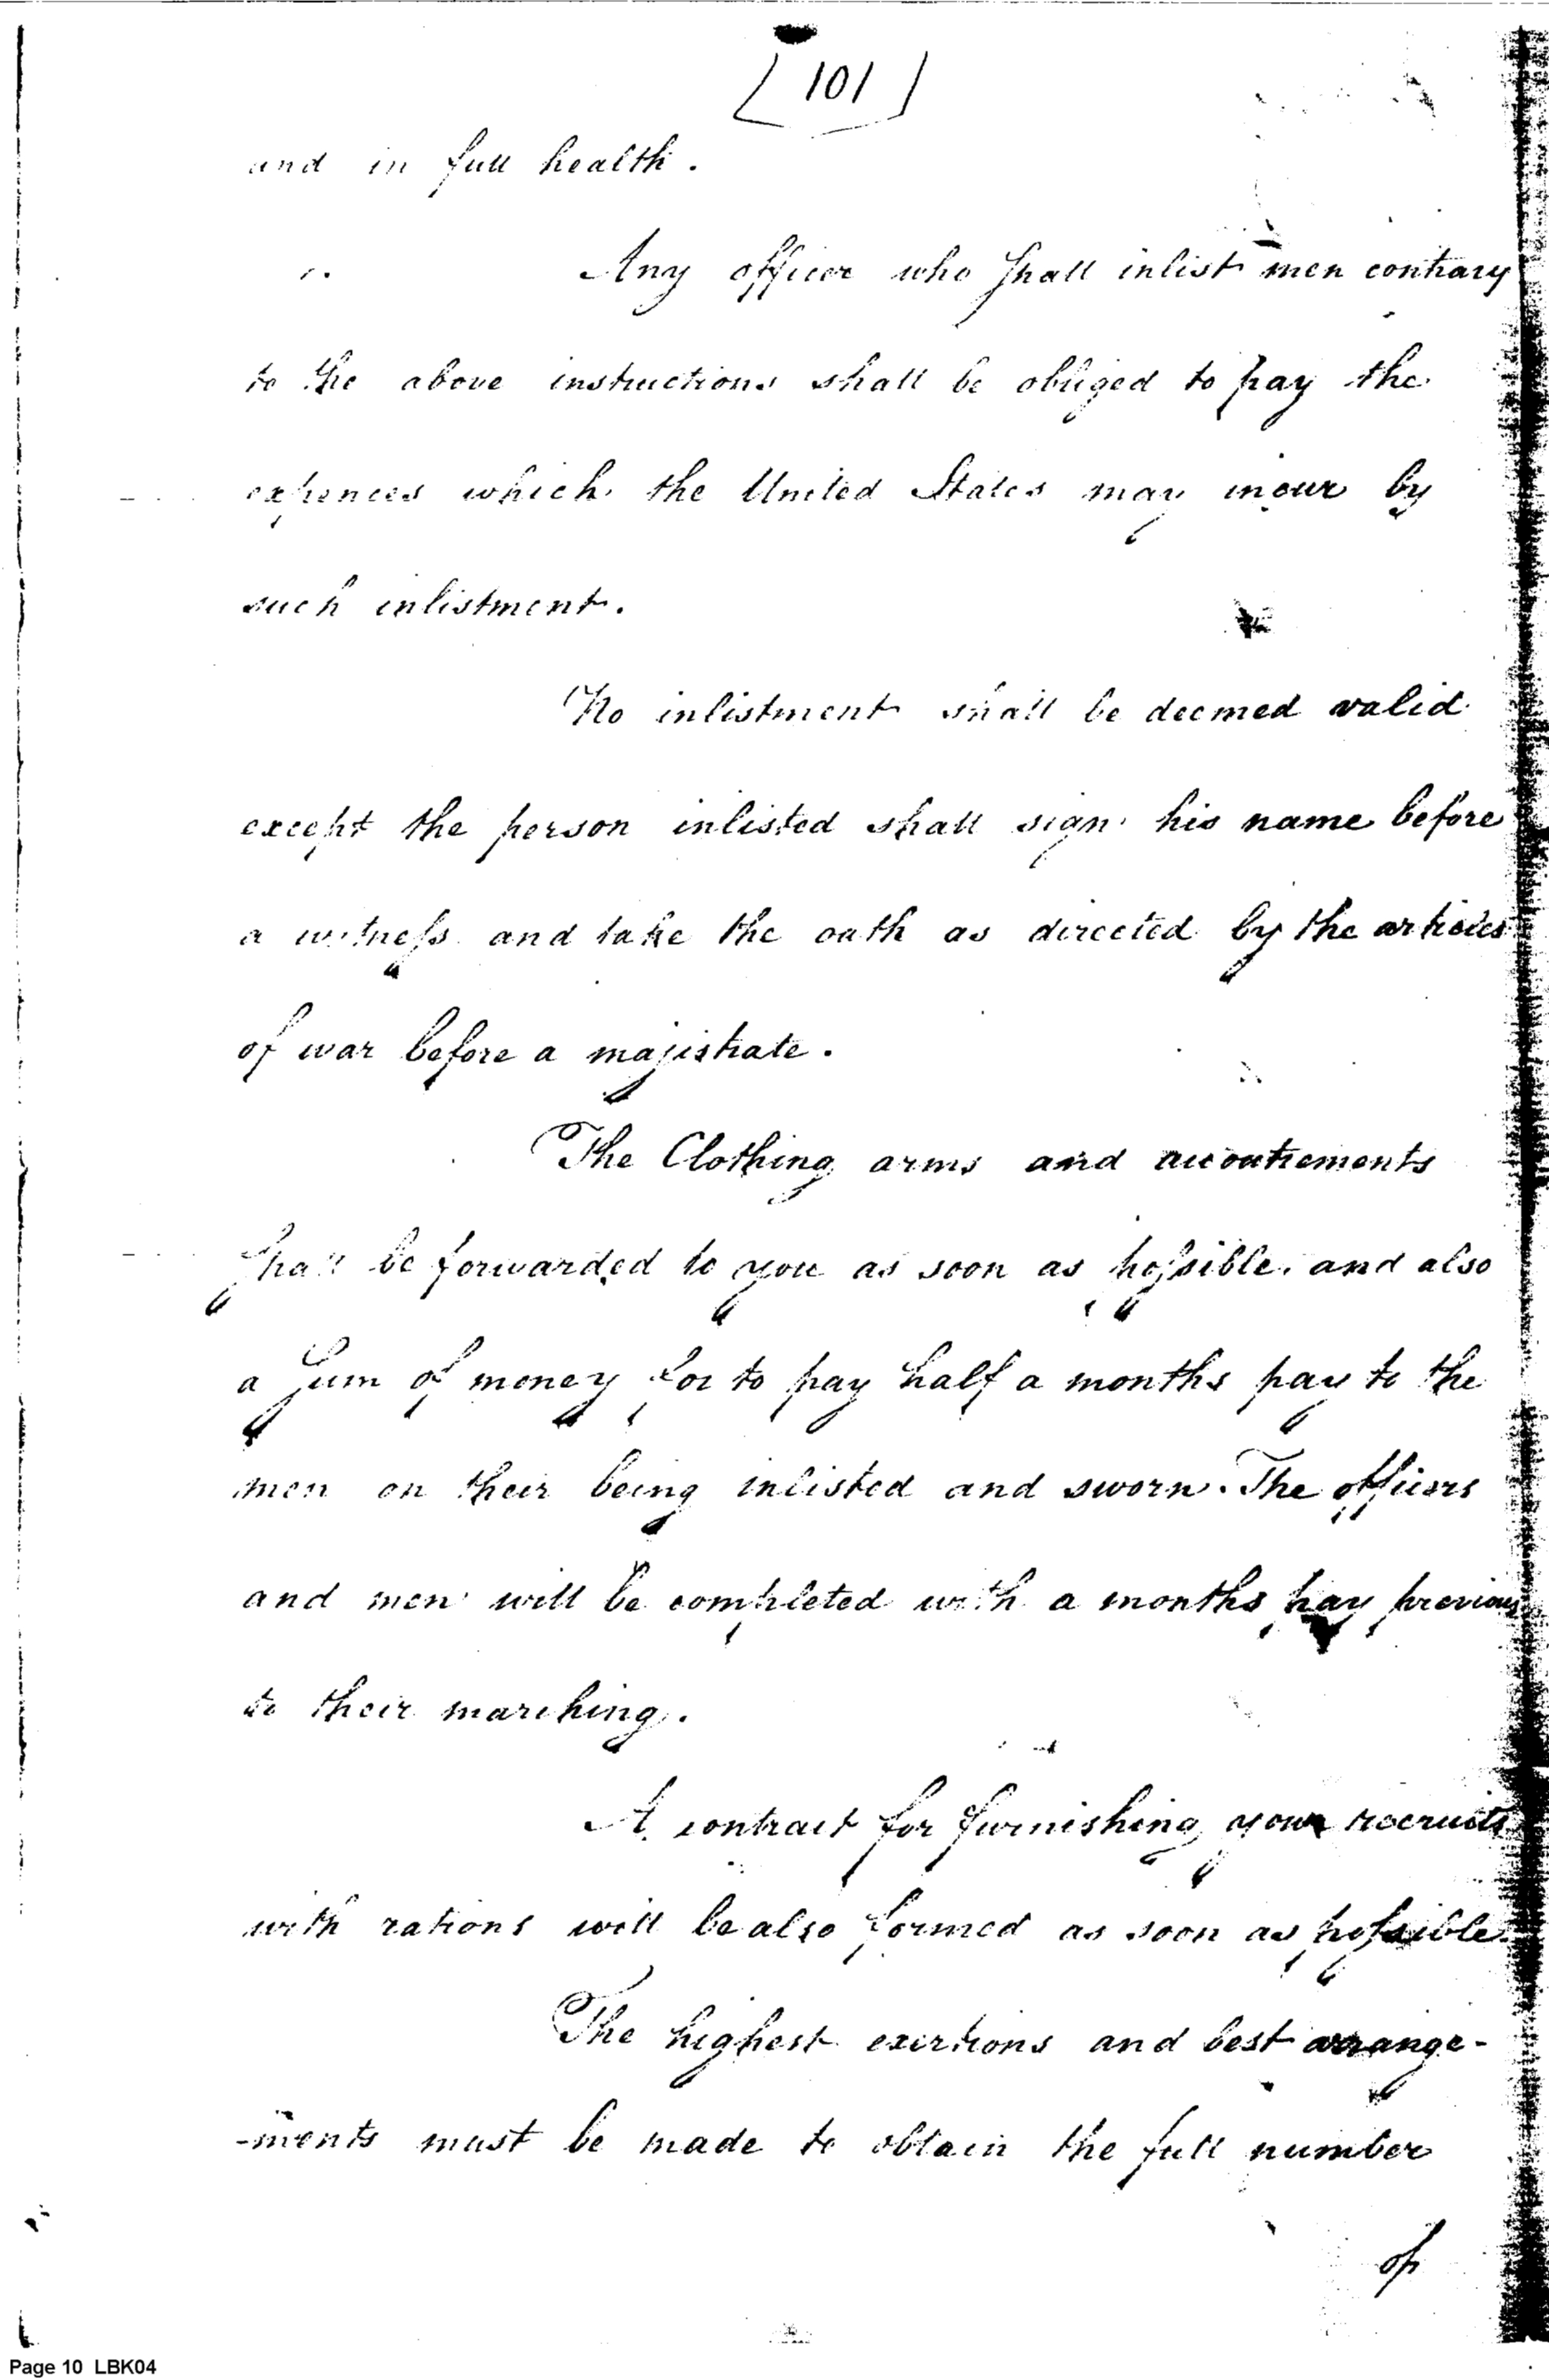 [ 101 ]
and in full health.
Any officer who shall inlist men contrary
to the above instructions shall be obliged to pay the
expences which the United States may incur by
such inlistment.
No inlistment shall be deemed valid
except the person inlisted shall sign his name before
a witness and take the oath as directed by the articles
of war before a majistrate.
The Clothing arms and accoutrements
shall be forwarded to you as soon as possible. and also
a sum of money for to pay half a months pay to the
men on their being inlisted and sworn. The officers
and men will be completed with a months pay previous
to their marching.
A contract for furnishing your recruits
with rations will be also formed as soon as possible.
The highest exertions and best arrange-
-ments must be made to obtain the full number
of
Page 10 LBK04